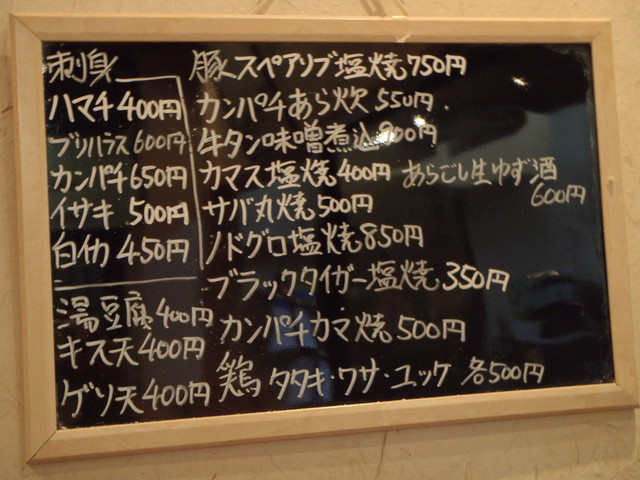 刺身
ハマチ 400円
ブリハラス 600円
カンパチ 650円
イサキ 500円
白イカ 450円
湯豆腐 400円
キス天 400円
ゲソ天 400円
豚スペアリブ塩焼 750円
カンパチあら炊 550円.
牛タン味噌煮込 900円
カマス塩焼 400円
サバ丸焼 500円
ノドグロ塩焼 850円
ブラックタイガー塩焼 350円
カンパチカマ焼 500円
鶏タタキ・ワサ・ユッケ 各500円
あらごし生ゆず酒
600円